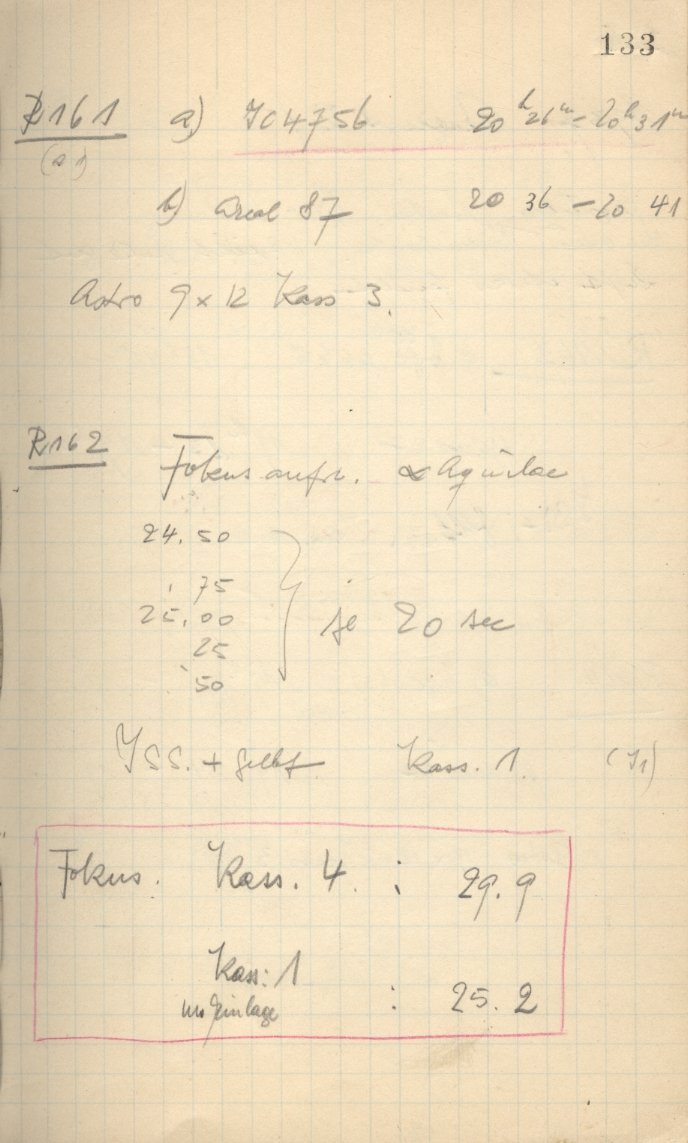 133
R161 a) IC4756 20h26m - 20h31m
(a1)
b) Areal 87 20 36 - 20 41
Astro 9 x 12 Kass 3.
R162
Fokusaufn. α Aquilae
24.50
.75
25.00
25
50
} je 20 sec
ISS. + gelbf Kass. 1. (I1)
Fokus. Kass. 4 : 29.9
Kass: 1
Einlage : 25.2